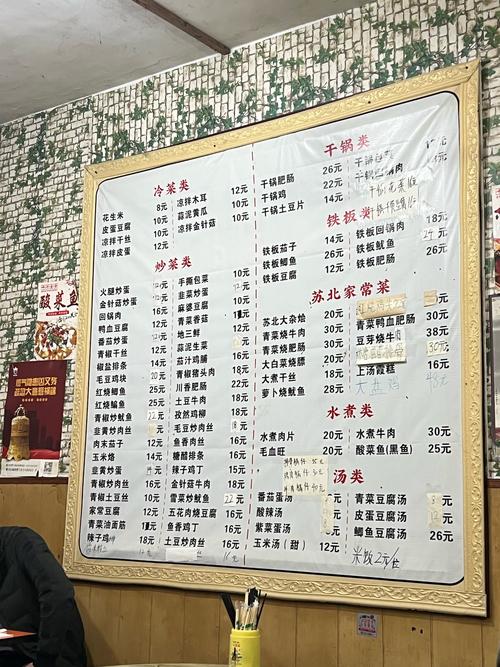 冷菜类
花生米 8元 凉拌木耳 12元
皮蛋豆腐 10元 蒜泥黄瓜 10元
凉拌干丝 10元 凉拌金针菇 10元
凉拌皮蛋 12元
炒菜类
火腿炒蛋 手撕包菜 10元
金针菇炒蛋 韭菜炒蛋
回锅肉 麻婆豆腐 10元
鸭血豆腐 青菜香菇
番茄炒蛋 地三鲜 12元
青椒干丝 12元 蒜泥生菜
椒盐排条 14元 茄汁鸡脯 16元
毛豆鸡块 青椒猪头肉
红烧鲫鱼 25元 川香肥肠 22元
红烧鳊鱼 25元 土豆牛肉 28元
青椒炒鱿鱼 22元 孜然鸡柳 18元
韭黄炒肉丝 毛豆炒肉丝
肉末茄子 12元 鱼香肉丝 16元
玉米烙 14元 糖醋排条 16元
韭黄炒蛋 辣子鸡丁 15元
青椒炒肉丝 16元 金针菇牛肉
青椒土豆丝 10元 雪菜炒鱿鱼 22元
家常豆腐 12元 五花肉烧豆腐 16元
青菜油面筋 鱼香鸡丁 16元
辣子鸡 18元 土豆炒肉丝 16元
干锅类
干锅肥肠 26元 干锅包菜
干锅鸡 22元
干锅土豆片 14元
铁板类
铁板茄子 14元 铁板回锅肉 18元
铁板鲫鱼 26元 铁板鱿鱼
铁板豆腐 12元 铁板肥肠 26元
苏北家常菜
苏北大杂烩 20元
青菜烧牛肉 30元 青菜鸭血肥肠 30元
青菜烧肥肠 30元 豆芽烧牛肉 38元
大白菜烧膘 20元
大煮干丝 18元 上汤霞糕
萝卜烧鱿鱼 28元 大盘鸡
水煮类
水煮肉片 20元 水煮牛肉 30元
毛血旺 20元 酸菜鱼(黑鱼) 25元
汤类
番茄蛋汤 青菜豆腐汤
酸辣汤 皮蛋豆腐汤
紫菜蛋汤 鲫鱼豆腐汤 26元
玉米汤(甜) 12元
米饭2元/位
酸菜鱼